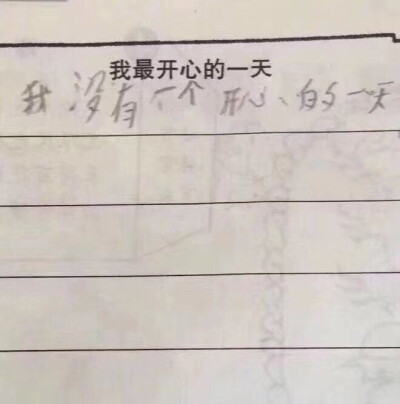 我最开心的一天
我没有一个开心的一天